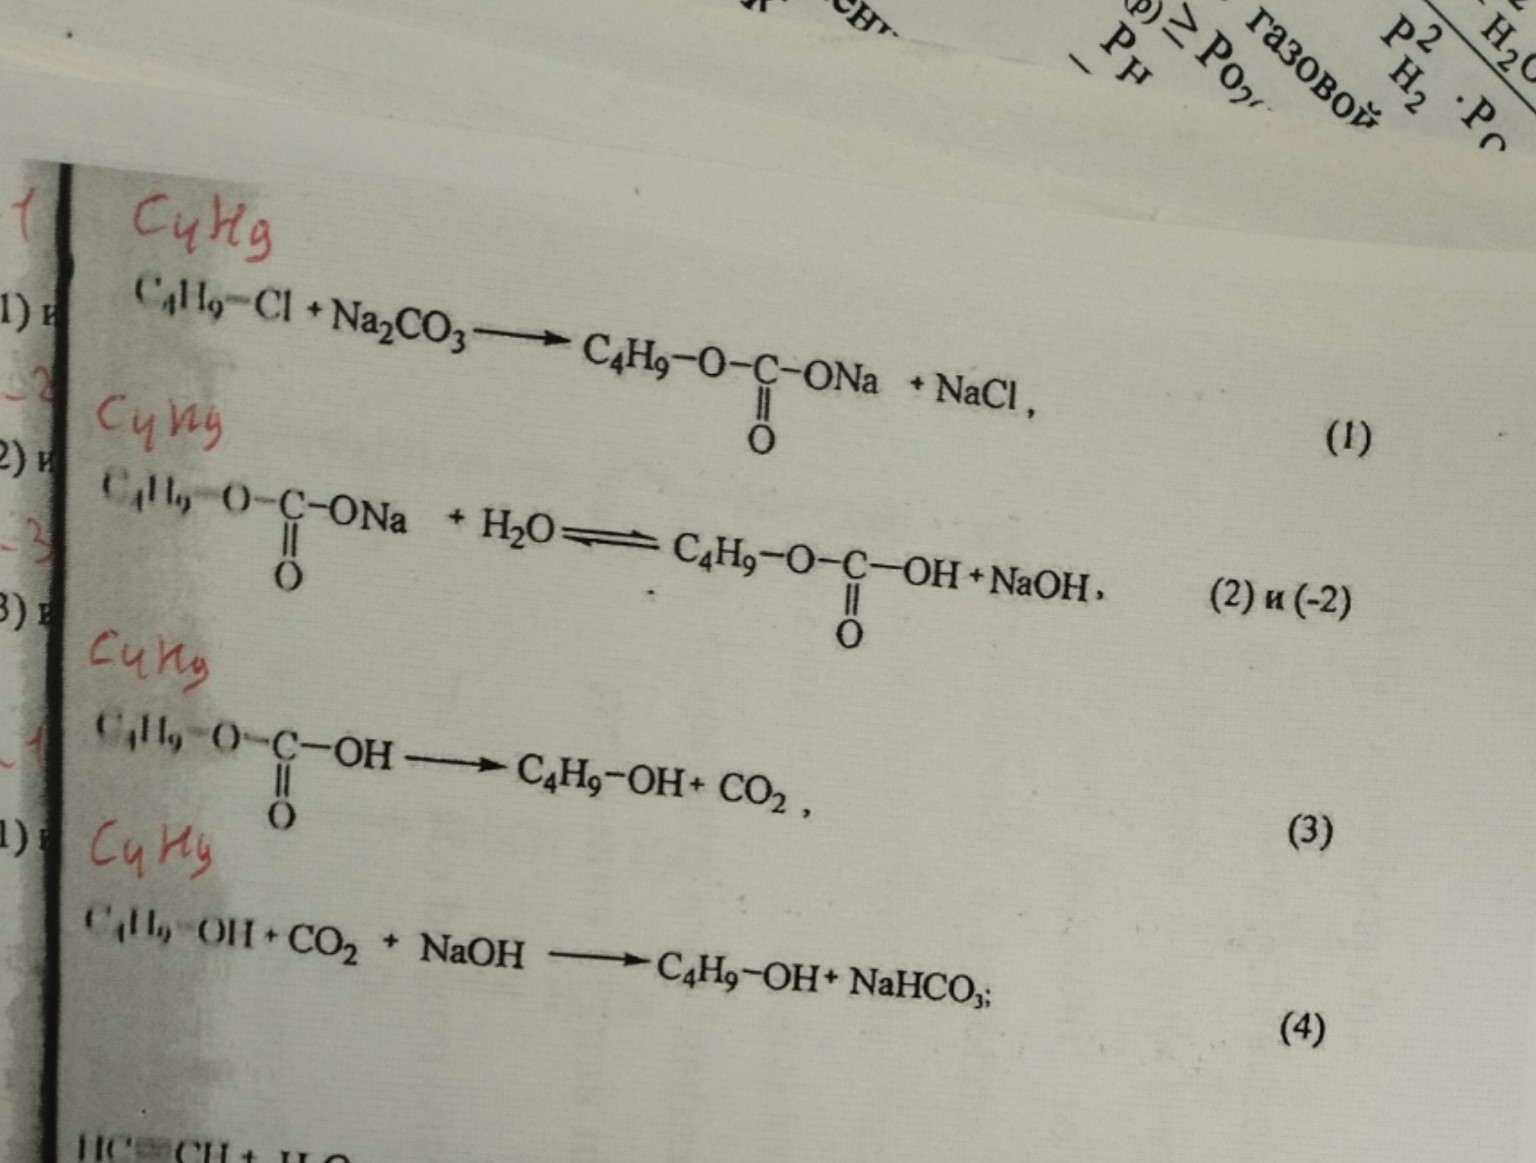 ≥ PO2
газовой
P H
P2 H2 · P
H2O
1
C4H9
C4H9−Cl + Na2CO3 ⟶ C4H9−O−C−ONa + NaCl ,
‖
O
(1)
1) и
-2
C4H9
C4H9−O−C−ONa + H2O ⇌ C4H9−O−C−OH + NaOH,
‖ ‖
O O
(2) и (-2)
2) и
-3
C4H9
C4H9−O−C−OH ⟶ C4H9−OH + CO2 ,
‖
O
(3)
3)
-1
C4H9
C4H9−OH + CO2 + NaOH ⟶ C4H9−OH + NaHCO3;
(4)
1)
HC≡CH + H2O